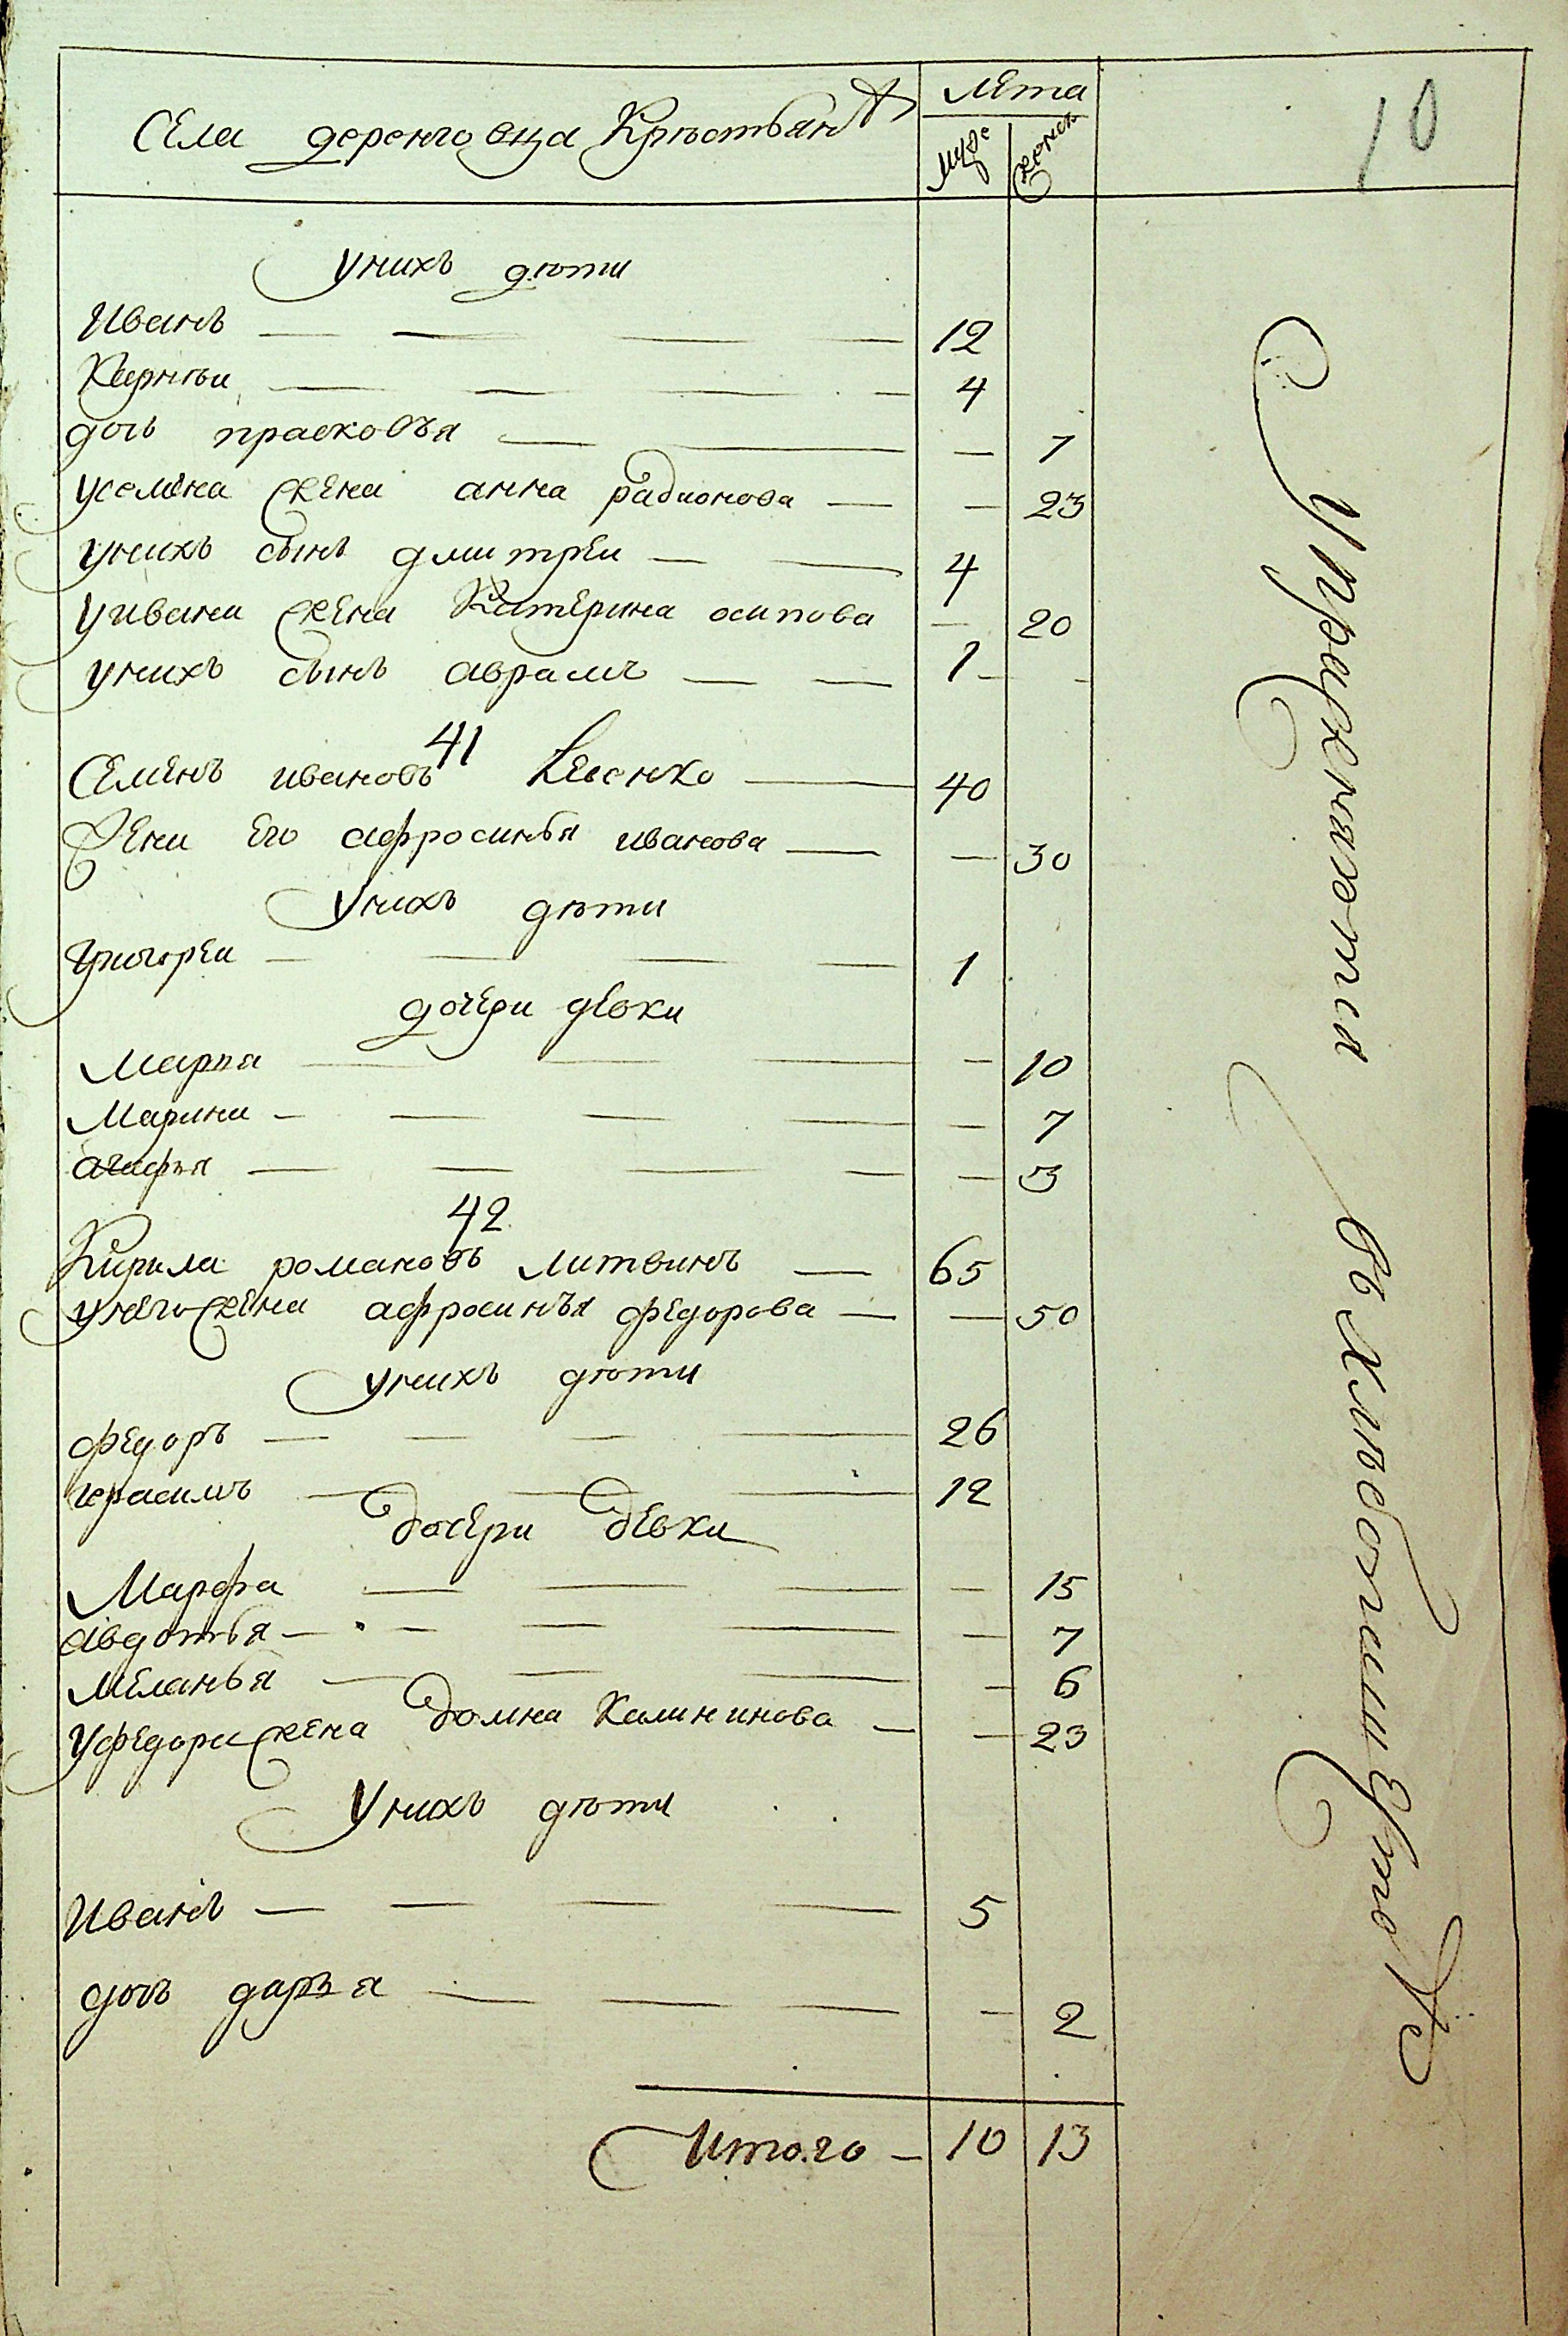 Села деренговца Крѣстьянъ
Лѣта
муже
женск
10
У нихъ дѣти
Иванъ — 12
Карнѣи — 4
дочь прасковья — — 7
У семена жена анна радионова — — 23
У нихъ сынъ дмитреи — 4
У ивана жена Катерина осипова — 20
У нихъ сынъ аврамъ — 1 - -
41
Семенъ ивановъ — 40
Жена его афросинья иванова — — 30
У нихъ дѣти
Григореи — 1
дочери девки
Марья — — 10
Марина — — 7
агафья — — 3
42
Кирила романовъ литвинъ — 65
У него жена афросинья федорова — — 50
У нихъ дѣти
федоръ — 26
герасимъ — 12
дочери девки
Марфа — — 15
авдотья — — 7
меланья — — 6
У федора жена домна Калининова — — 23
У нихъ дѣти
Иванъ — 5
дочь дарья — — 2
Итого — 10 13
Упражняются въ хлѣбопашествѣ